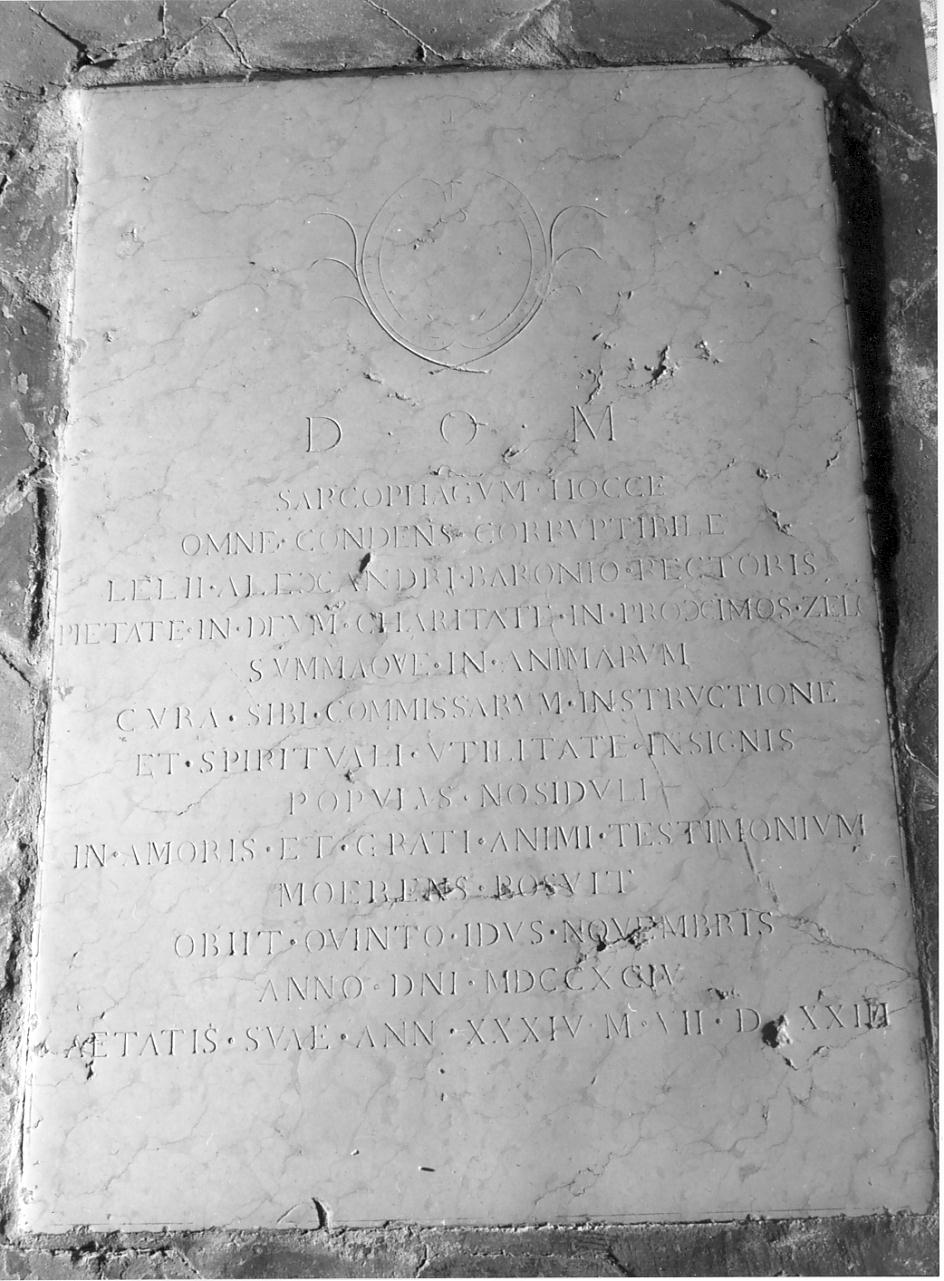 D · O · M
SARCOPHAGVM · HOCCE
OMNE · CONDENS · CORRVPTIBILE
LELII · ALEXANDRI · BARONIO · RECTORIS
PIETATE · IN · DEVM · CHARITATE · IN · PROXIMOS · ZELO
SVMMAQVE · IN · ANIMARVM
CVRA · SIBI · COMMISSARVM · INSTRVCTIONE
ET · SPIRITVALI · VTILITATE · INSIGNIS
POPVLVS · NOSIDVLI
IN · AMORIS · ET · GRATI · ANIMI · TESTIMONIVM
MOERENS · POSVIT
OBIIT · QVINTO · IDVS · NOVEMBRIS
ANNO · DNI · MDCCXCIV
AETATIS · SVAE · ANN · XXXIV M · VII · D · XXIII